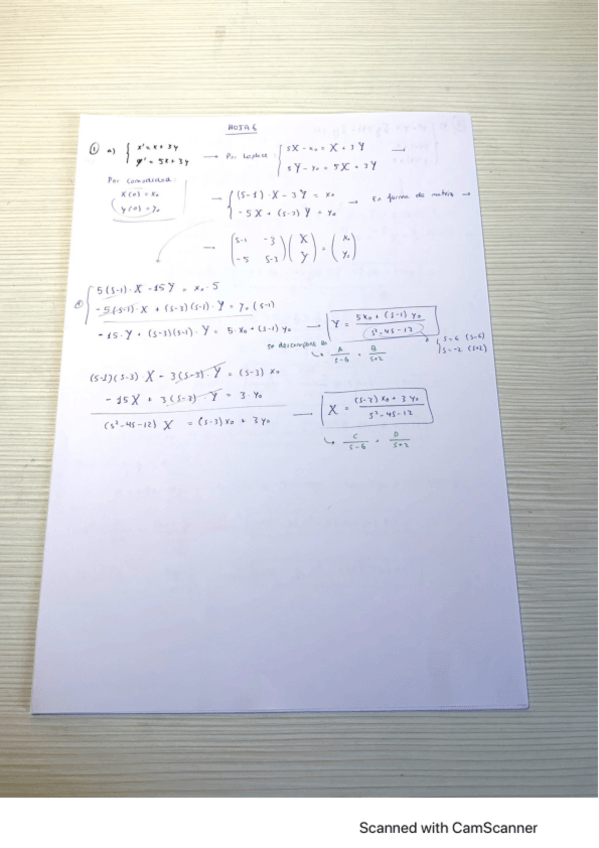 HOJA 6
① a) { x' = x + 3y → Por Laplace : { sX - x₀ = X + 3Y →
y' = 5x + 3y sY - y₀ = 5X + 3Y
Por comodidad:
x(0) = x₀
y(0) = y₀
→ { (s-1)·X - 3Y = x₀ → En forma de matriz →
-5X + (s-3)Y = y₀
→ ( s-1 -3 ) ( X ) = ( x₀ )
( -5 s-3 ) ( Y ) ( y₀ )
{ 5(s-1)·X - 15Y = x₀·5
-5(s-1)·X + (s-3)(s-1)·Y = y₀(s-1)
-15·Y + (s-3)(s-1)·Y = 5·x₀ + (s-1)y₀ → Y = 5x₀ + (s-1)y₀ / s²-4s-12
se descompone en A/s-6 + B/s+2
s=6 (s-6)
s=-2 (s+2)
(s-1)(s-3)·X - 3(s-3)·Y = (s-3)x₀
-15X + 3(s-3)·Y = 3·y₀
(s²-4s-12)X = (s-3)x₀ + 3y₀ → X = (s-3)x₀ + 3y₀ / s²-4s-12
C/s-6 + D/s+2
Scanned with CamScanner